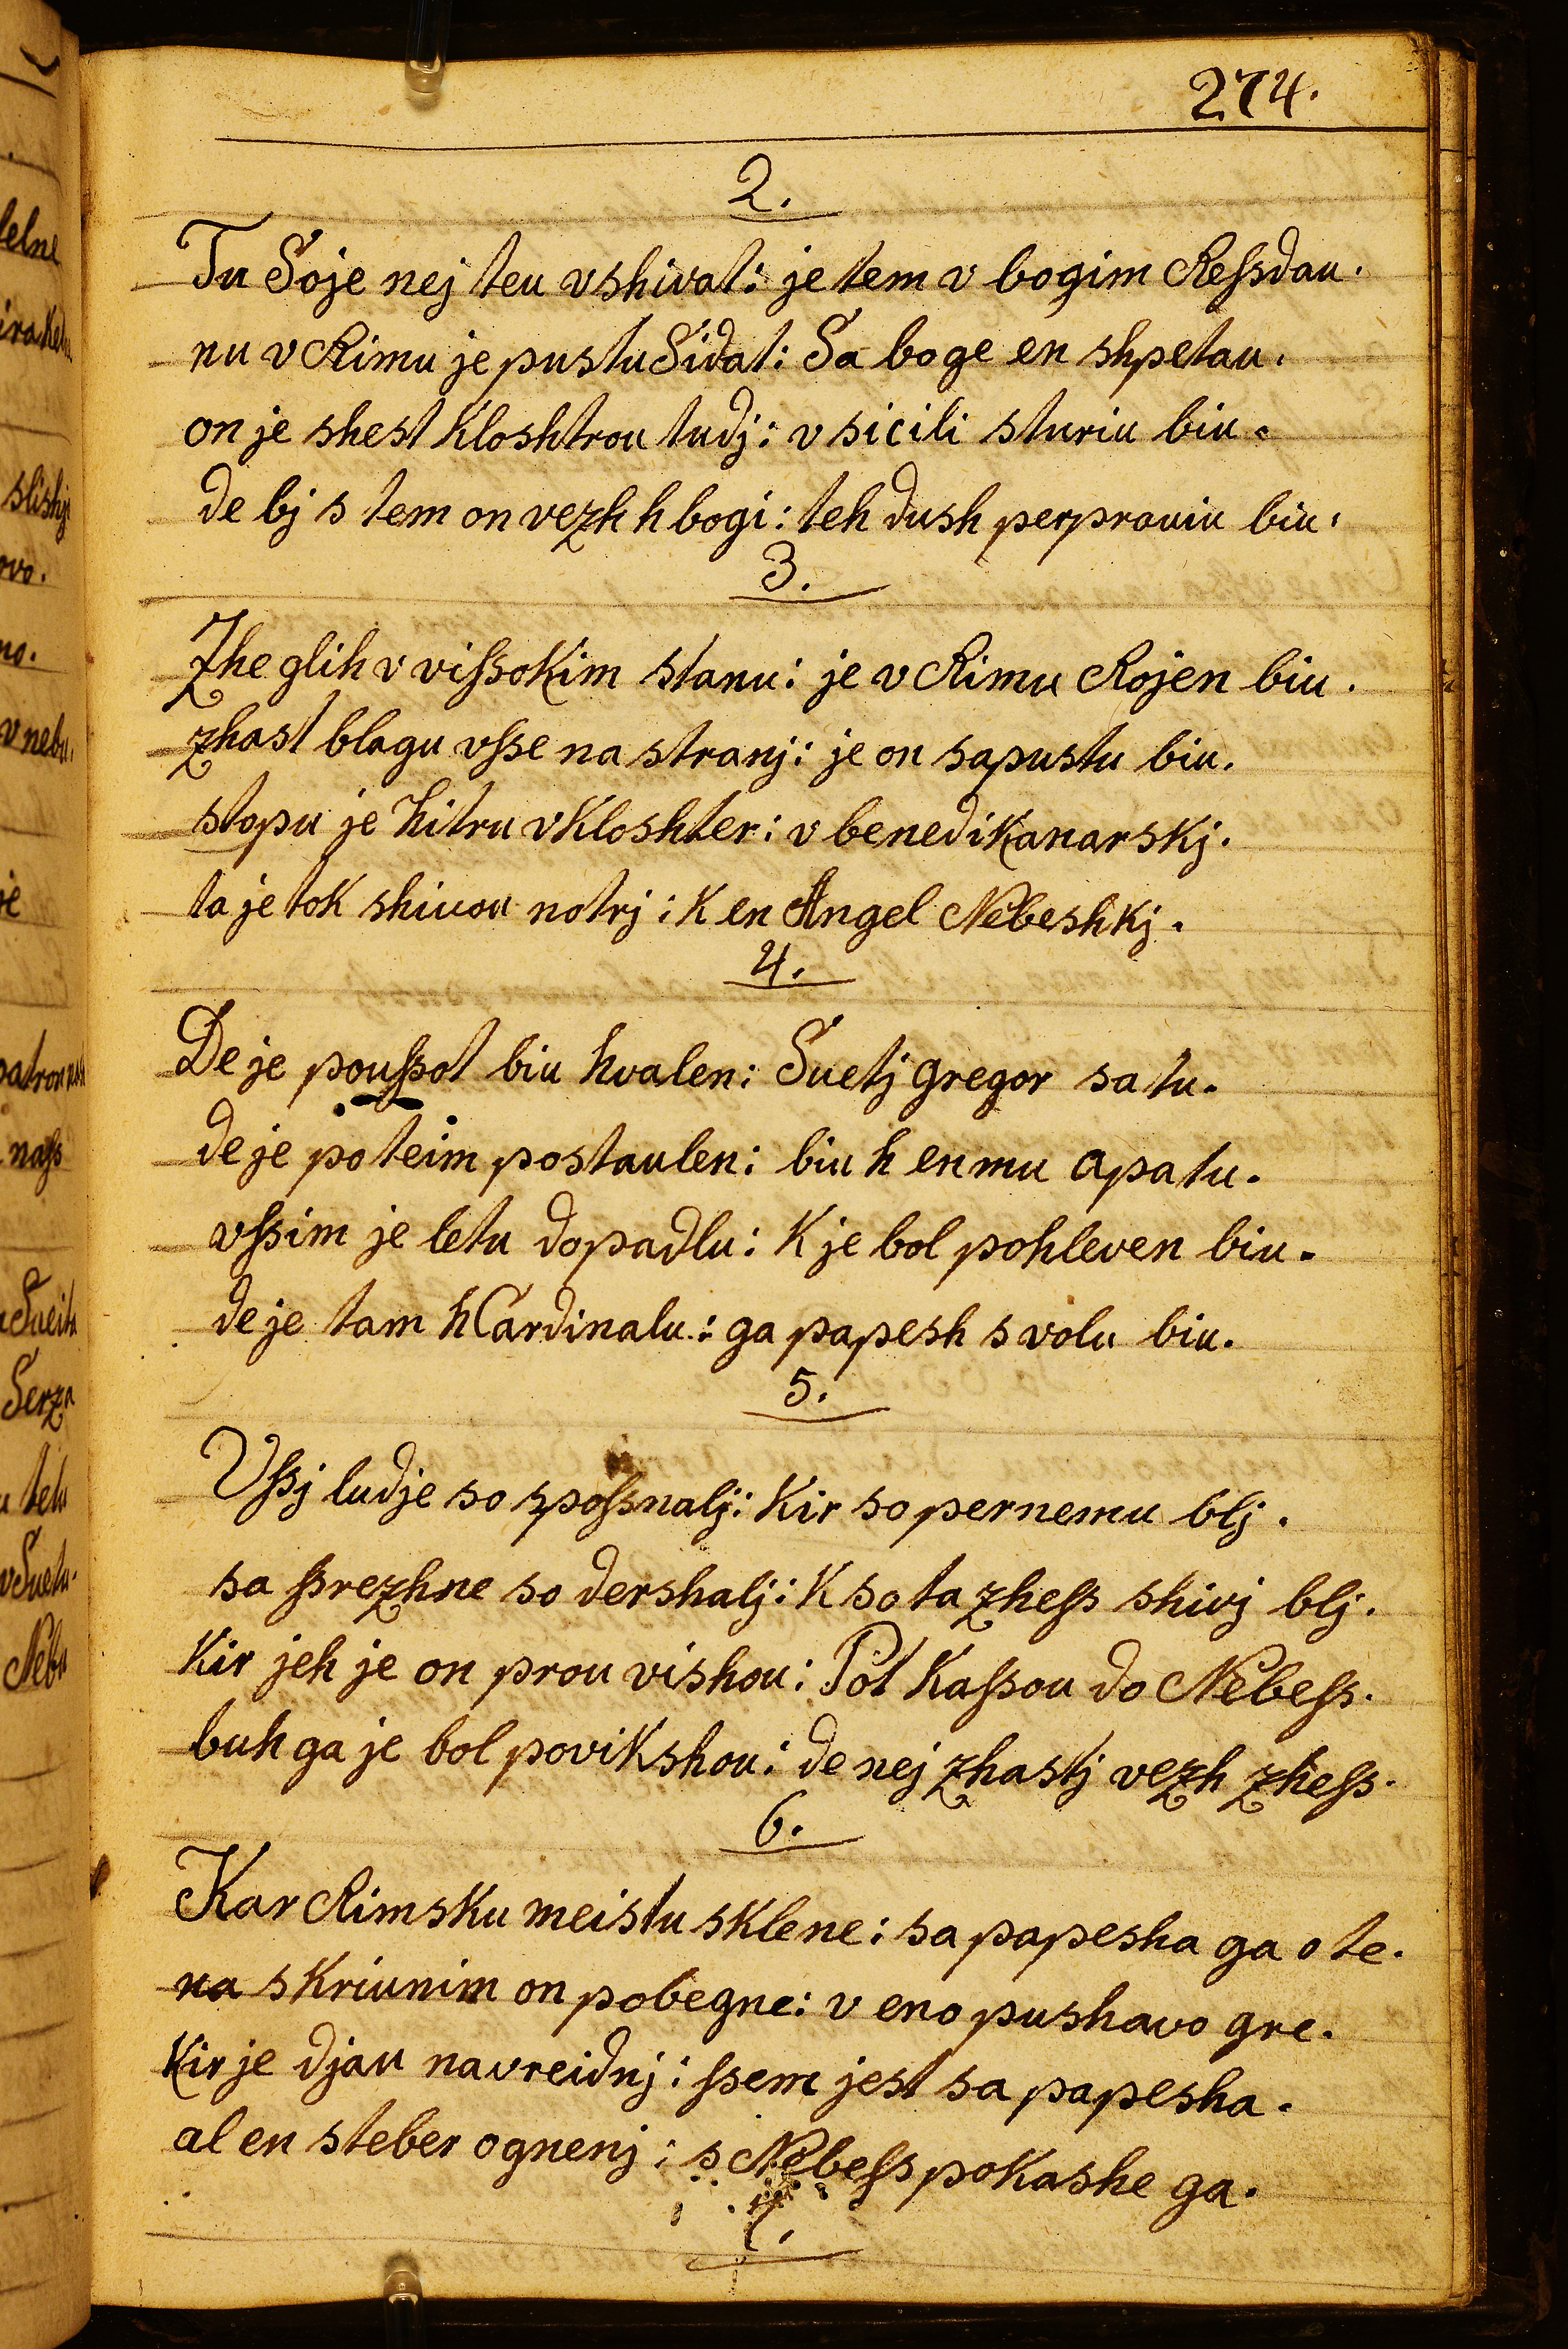 274.
2.
Tu Soje nej teu vshivat: je tem v bogim Reſsdau.
nu v Rimu je pustu Sidat: Sa boge en shpetau.
on je shest Kloshtrou tudj: v sicili sturiu biu.
de bj s tem on vezh h bogi: teh dush perprauiu biu.
3.
Zhe glih v viſsokim stanu: je v Rimu Rojen biu.
zhast blagu vſse na stranj: je on sapustu biu.
stopu je hitru v Kloshter: v benedikanarskj.
ta je tok shivou notrj: K en Angel Nebeshkj.
4.
De je pouſsot biu hvalen: Suetj gregor sa tu.
de je poteim postaulen: biu h enmu apatu.
vſsim je letu dopadlu: K je bol pohleven biu.
de je tam h Cardinalu: ga papesh svolu biu.
5.
Vſsj ludje so spoſsnalj: Kir so pernemu blj.
sa ſsrezhne so dershalj: K so ta zheſs shivj blj.
Kir jeh je on prou vishou: Pot Kaſsou do Nebeſs.
buh ga je bol povikshou: de nej zhastj vezh zheſs.
6.
Kar Rimsku meistu sklene: sa papesha ga o te.
na skriunim on pobegne: v eno pushavo gre.
Kir je djau navreidnj: ſsem jest sa papesha.
al en steber ognenj: s Nebeſs pokashe ga.
7.
lelne
slishj
ovo.
no.
v nebu.
je
naſs
Serza
Nebu